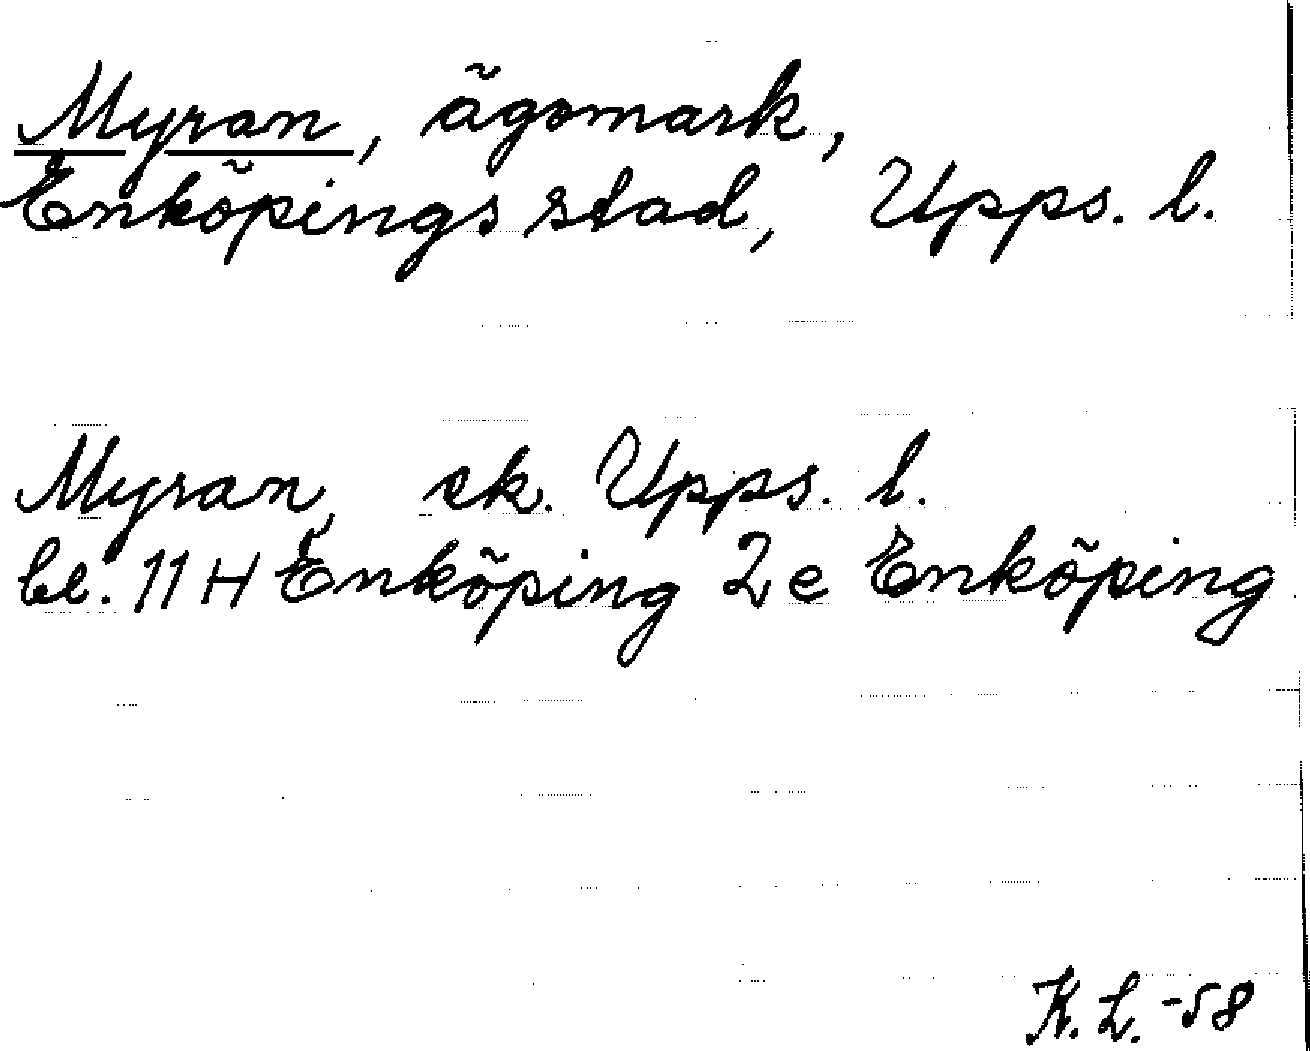 Myran, ägomark,
Enköpings stad, Upps. l.
Myran, ek. Upps. l.
bl. 11 H Enköping 2e Enköping
K. L. -58